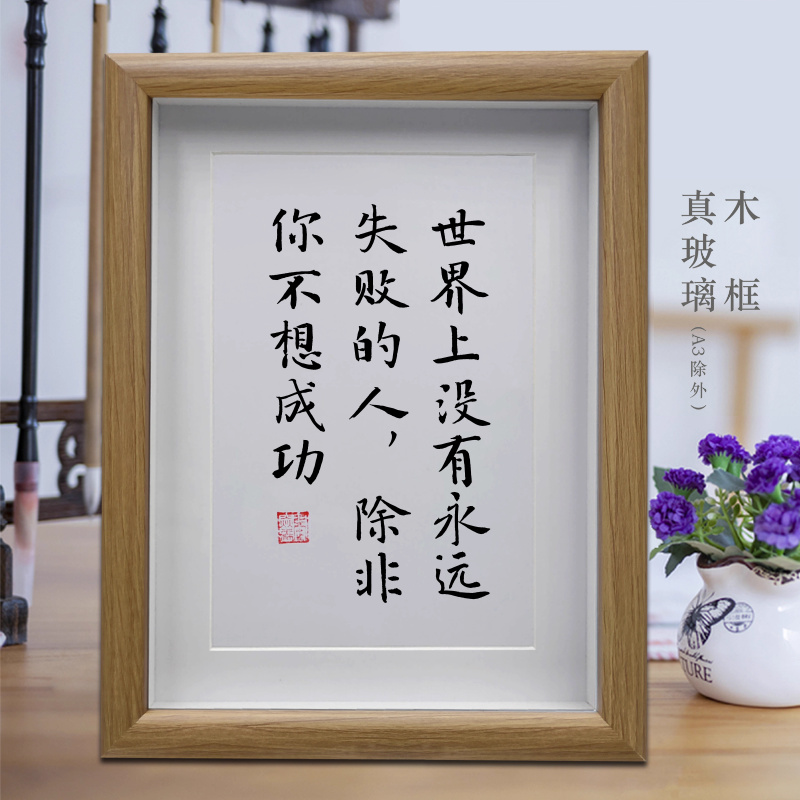 世界上没有永远
失败的人，除非
你不想成功
木框
真玻璃
(A3除外)
TURE